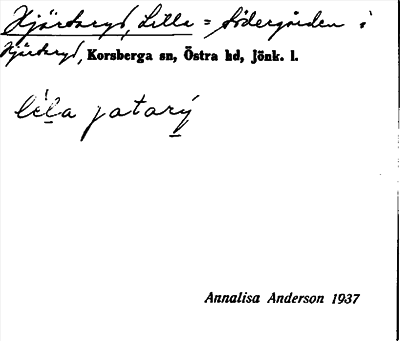 Hjärtaryd, Lilla = Södergården i
Hjärtaryd, Korsberga sn, Östra hd, Jönk. l.
lela jatarý
Annalisa Anderson 1937